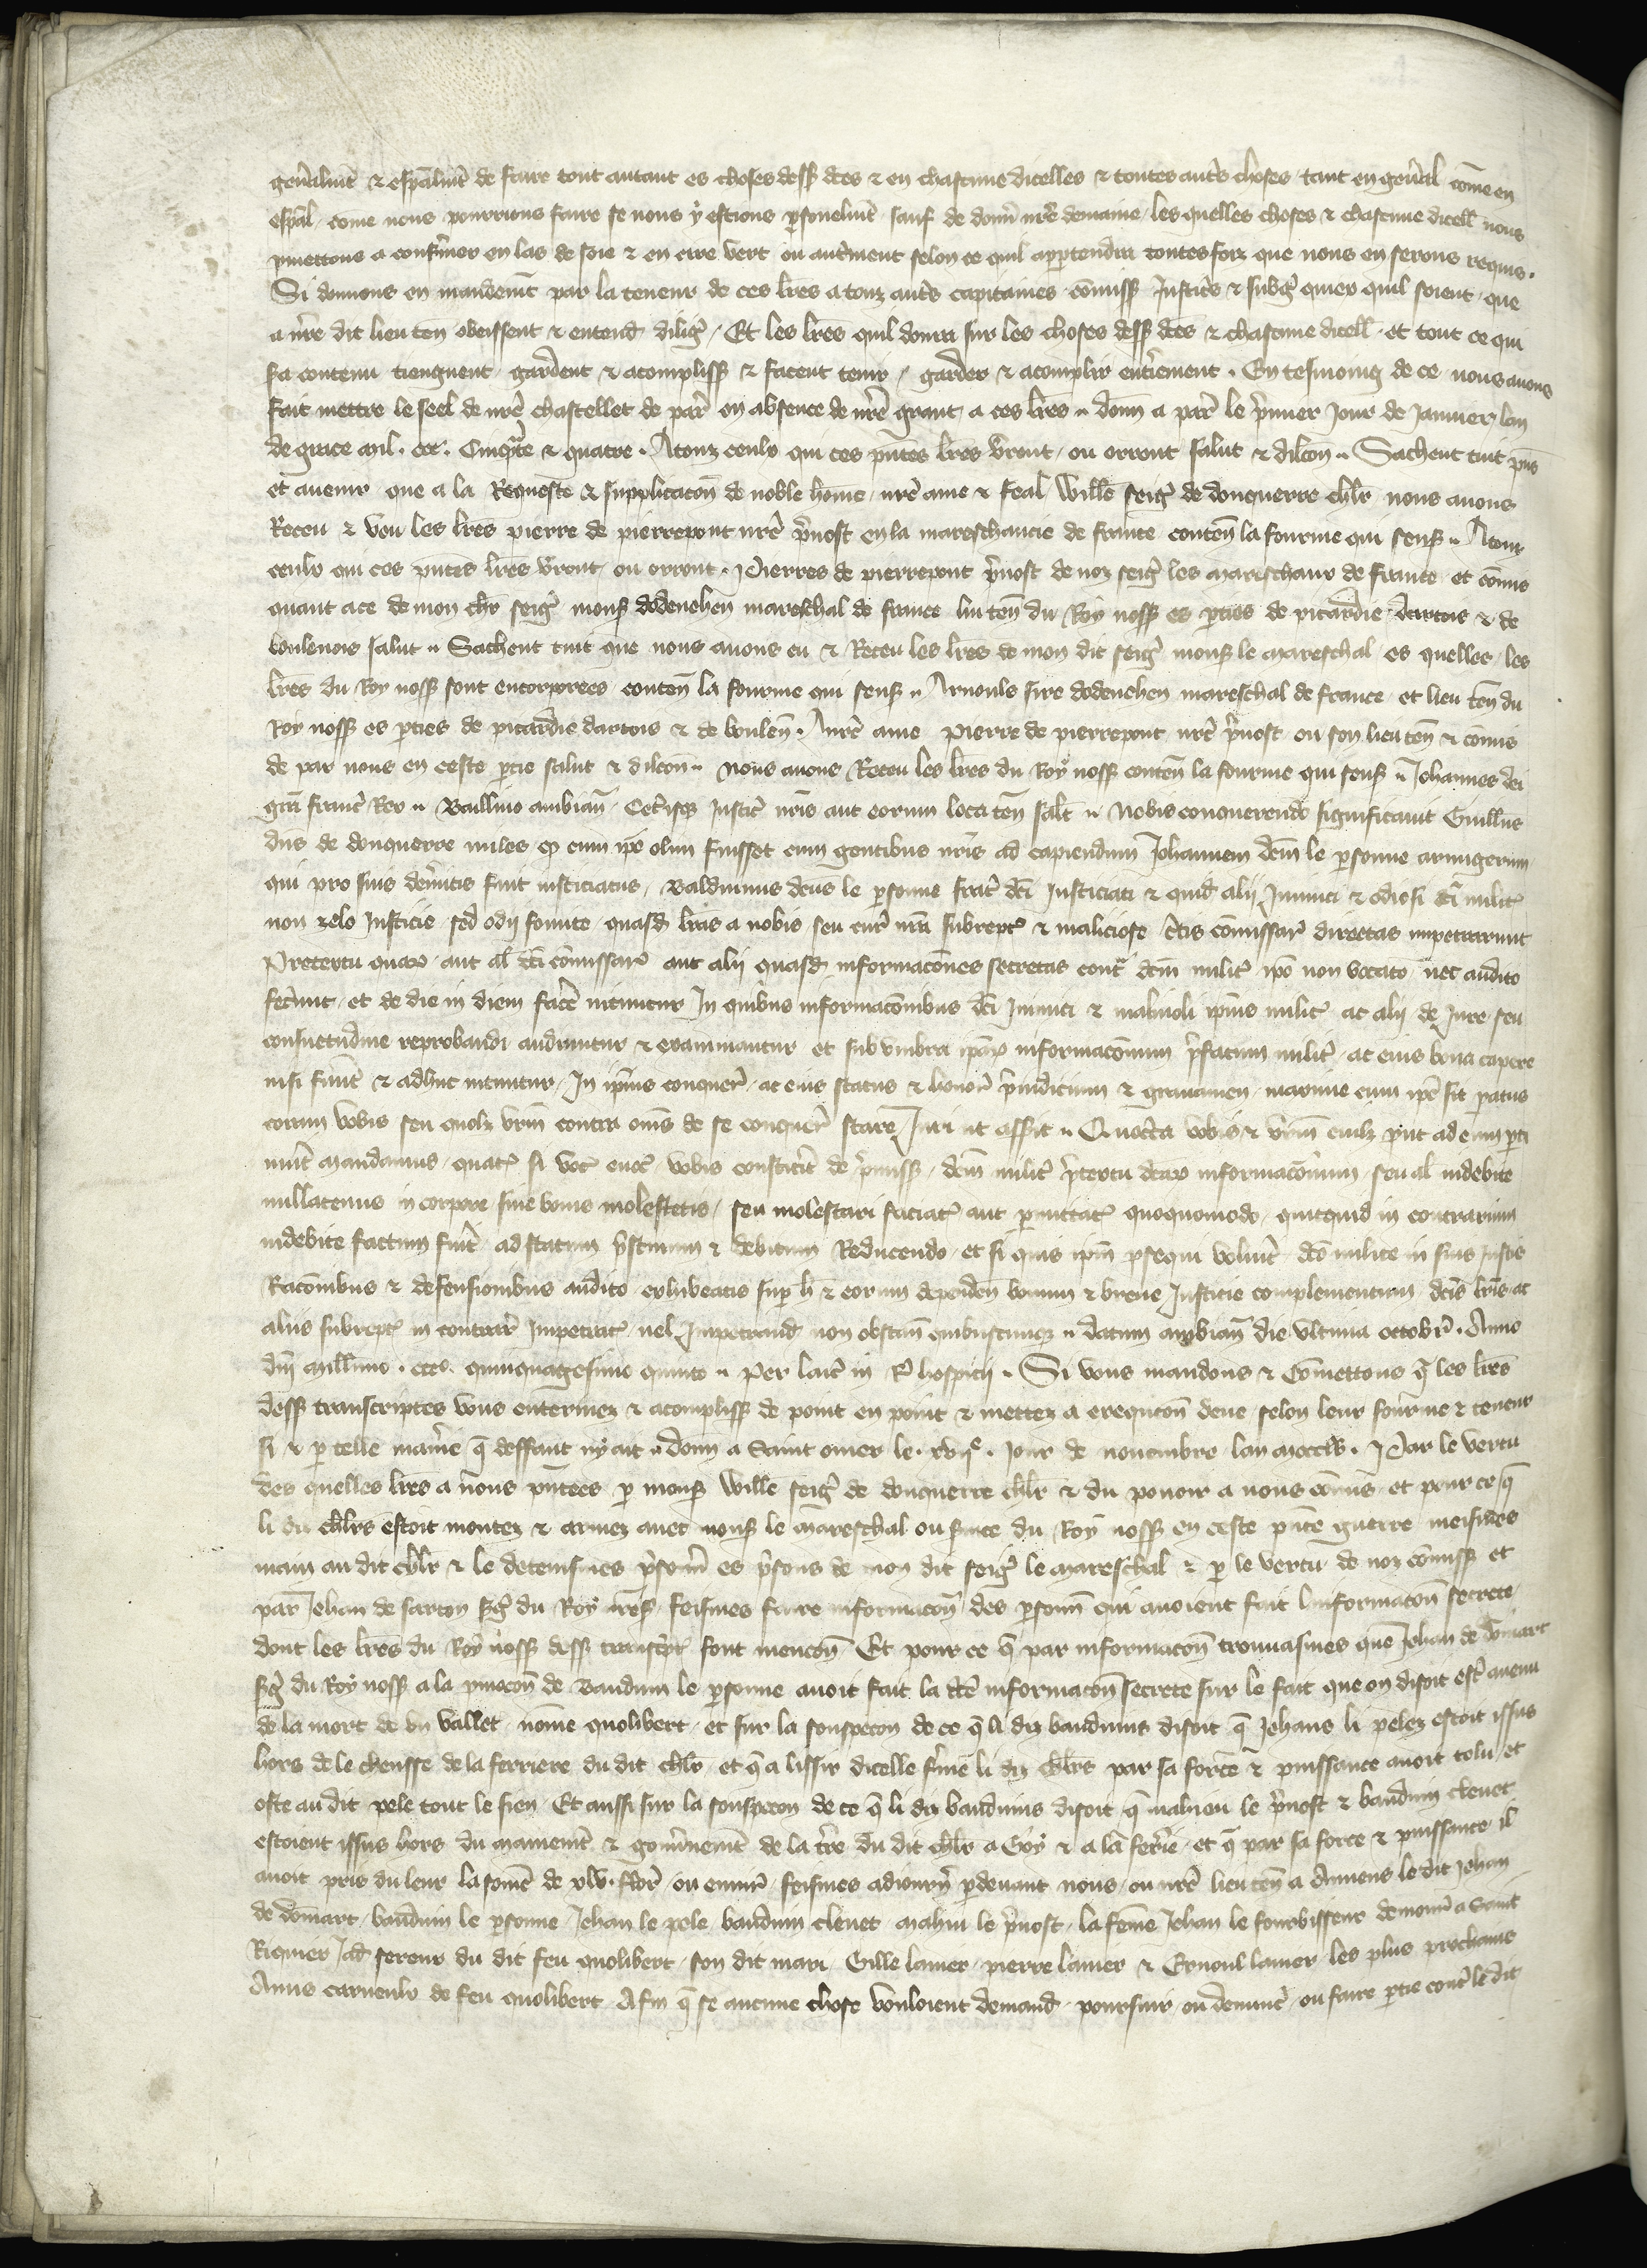 gen̄alment & esp̄alment de faire tout autant es choses dess̄ dc̄es & en chascune dicelles & toutes aut̄s choses tant en gen̄al com̄e en
esp̄al come nous pourrions faire se nous y estions p̄sonelmēt sauf de donn̄ nr̄e demaine les quelles choses & chascune dicell̄ nous
p̄mettons a conf̄mer en las de soie & en cire vert ou aut̄ment selon ce quil appartendra toutesfoiz que nous en serons requis.
Si donnons en mandemēt par la teneur de ces lr̄es a touz aut̄s capitaines com̄iss̄ Justic̄s & subḡ quiex quil soient que
a nr̄e dit lieu ten̄ obeissent & entend̄ diliḡ Et les lr̄es quil donra sur les choses dess̄ dc̄es & chascune dicell̄ et tout ce qui
s̄a contenu tiengnent gardent & acompliss̄ & facent tenir garder & acomplir ent̄ierement. En tesmoing de ce nous auons
fait mettre le seel de nr̄e chastellet de par̄ en absence de nr̄e grant a ces lr̄es donn̄ a par̄ le p̄mier Jour de Januier lan
de grace mil. ccc. Cinqᵃte & quatre. A touz ceulx qui ces p̄ntes lr̄es v̄ront ou orront salut & dilcōn Sachent tuit p̄ns
et auenir que a la Requeste & supplicacōn de noble home nr̄e ame & feal Will̄e seig̃ de donquerre chl̄r nous auons
Receu & veu les lr̄es pierre de pierrepont nr̄e p̄uost en la mareschaucie de france conten̄ la fourme qui sens̄ A touz
ceulx qui ces p̄ntes lr̄es v̄ront ou orront. Pierres de pierrepont p̄uost de noz seig̃ les mareschaux de france et com̄is
quant a ce de mon ch̄r seig̃ mons̄ dodenehen mareschal de france liu ten̄ du Roy noss̄ es p̄ties de picardie dartois & de
boulenois salut Sachent tuit que nous auons eu & Receu les lr̄es de mon dit seig̃ mons̄ le mareschal es quelles les
lr̄es du Roy noss̄ sont encorporees conten̄ la fourme qui sens̄ Arnouls sire dodenehen mareschal de france et lieu ten̄ du
Roy noss̄ es p̄ties de picardie dartois & de boulen̄. A nr̄e ame Pierre de pierrepont nr̄e p̄uost ou son lieu ten̄ & com̄is
de par nous en ceste p̄tie salut & dilcōn nous auons Receu les lr̄es du Roy noss̄ conten̄ la fourme qui sens̄ Johannes dei
gr̄a franc̄ Rex Baillivo ambian̄ Cet̄isq Justic̄ nr̄is aut eorum loca ten̄ sal̄t Nobis conquerendo significauit Guill̄us
dn̄s de donquerre miles q̄ cum ip̄e olim fuisset cum gentibus nr̄is ad capiendum Johannem dc̄m le p̄sonne armigerum
qui pro suis dem̄itis fuit iusticiatus, Balduinus dc̄us le p̄sonne frat̄ dc̄i Justiciati & quid̄ alij Inimici & odiosi dc̄i milit̄
non zelo Justicie sed odij fomite quasd̄ lr̄as a nobis seu cur̄ nr̄a subrept̄ & maliciose c̄tis com̄issar̄ directas impetrarunt
Pretextu quar̄ aut al̄ dc̄i com̄issar̄ aut alij quasd̄ informacōnes secretas cont̄ dc̄m milit̄ ip̄o non vocato nec audito
fec̄unt et de die in diem fac̄e nituntur In quibus informacōnibus dc̄i Inimici & maliuoli ip̄ius milit̄ ac alij de Jure seu
consuetudine reprobandi audiuntur & examinantur et sub vmbra ip̄ar̄ informacōnum p̄fatum milit̄ ac eius bona capere
nisi fuīt & adhuc nituntur In ip̄ius conquer̄ ac eius status & honor̄ p̄iudicium & grauamen maxime cum ip̄e sit p̄atus
coram vobis seu quolz vr̄m contra om̄s de se conquer̄ stare Juri ut asserit Quocirca vobis & vr̄m cuilz p̄ut ad eum p̄ti
nuīt mandamus quat̄ si voc̄ euoc̄ vobis constit̄it de p̄miss̄ dc̄m milit̄ p̄textu dc̄ar̄ informacōnum seu al̄ indebite
nullatenus in corpore siue bonis molestetis seu molestari faciat̄ aut p̄mittat̄ quoquomodo quicquid in contrarium
indebite factum fuīt ad statum p̄stinum & debitum Reducendo et si quis ip̄m p̄sequi volūit dc̄o milite in suis iustis
Racōnibus & defensionibus audito exhibeatis sup̄ h̄ & eorum dependen̄ bonum & breue Justicie complementum dc̄is lr̄is ac
aliis subrept̄ in contrar̄ Impetrat̄ uel Impetrand̄ non obstan̄ quibuscunq datum ambian̄ die ultima octobr̄. Anno
dn̄i mill̄imo. ccc. quinquagesimo quinto Per laic̄ in R̄ hospicij Si vous mandons & com̄ettons q̄ les lr̄es
dess̄ transcriptes vous enterinez & acompliss̄ de point en point & mettez a execucōn deue selon leur fourme & teneur
si & p̄ telle manīe q̄ deffaut ny ait donn̄ a Saint omer le. xvijᵉ. Jour de nouembre lan mccclv. Par le vertu
des quelles lr̄es a nous p̄ntees p̄ mons̄ Will̄e seig̃ de donquerre chl̄r & du pouoir a nous com̄is et pour ce q̄
li dis chl̄rs estoit montez & armez auec mons̄ le mareschal ou s̄uice du Roy noss̄ en ceste p̄nte guerre meismes
main au dit chl̄r & le detenismes p̄sonn̄ es p̄sons de mon dit seig̃ le mareschal & p̄ le vertu de noz com̄iss̄ et
par Jehan de sarton s̄g̃ du Roy nr̄es̄ feismes faire informacōn des p̄sonn̄ qui auoient fait linformacōn secrete
dont les lr̄es du Roy noss̄ dess̄ transcp̄t̄ font mencōn Et pour ce q̄ par informacōn trouuasmes que Jehan de domart
s̄g̃ du Roy noss̄ a la p̄mocōn de Bauduin le p̄sonne auoit fait la dc̄e informacōn secrete sur le fait que on disoit est̄ auenu
de la mort de un vallet nōme quolibert et sur la souspecon de ce q̄ li diz bauduins disoit q̄ Jehans li pelez estoit issus
hors de le chensse de la ferriere du dit chl̄r et q̄ a lissir dicelle f̄me li diz chl̄rs par sa force & puissance auoit tolu et
oste au dit pele tout le sien Et aussi sur la souspecon de ce q̄ li diz bauduins disoit q̄ mahieu le p̄uost & bauduin clenet
estoient issus hors du maniemēt & gouu̅nemēt de la t̄re du dit chl̄r a Goy & a la fer̄ie et q̄ par sa force & puissance il
auoit pris du leur la som̄e de xlv. flor̄ ou enuir̄ feismes adiourn̄ p̄deuant nous ou nr̄e lieu ten̄ a Amiens le dit Jehan
de domart bauduin le p̄sonne Jehan le pele bauduin clenet mahiu le p̄uost la fem̄e Jehan le fourbisseur demour̄ a Saint
Riquier Jad̄ sereur du dit feu quolibert son dit mari Gille lamer pierre lamer & Ernoul lamer les plus prochains
Amis carnculx de feu quolibert Afin q̄ se aucune chose vouloient demand̄ poursuir ou denunc̄ ou faire p̄tie cont̄ le dit